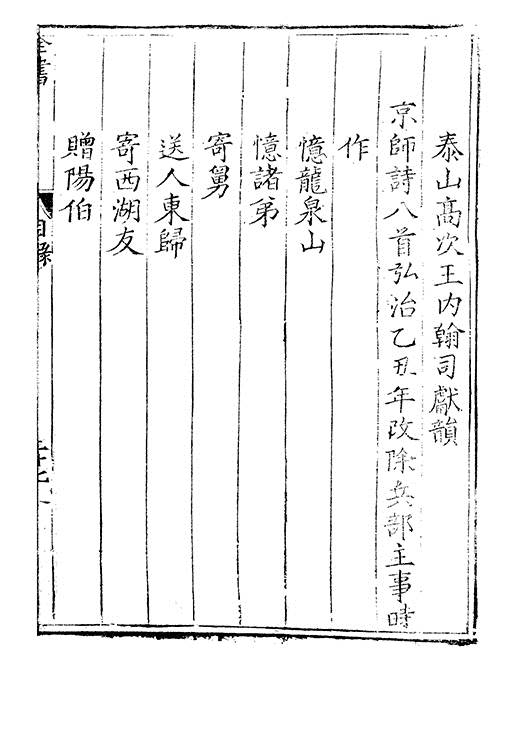 泰山高次王内翰司獻韻
京師詩八首弘治乙丑年改除兵部主事時
作
憶龍泉山
憶諸弟
寄舅
送人東歸
寄西湖友
贈陽伯
全書
目錄